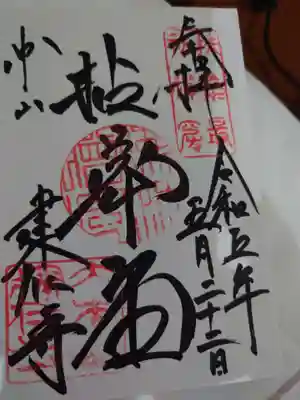 奉拝
令和五年
五月二十二日
拈華堂
東山
建仁寺